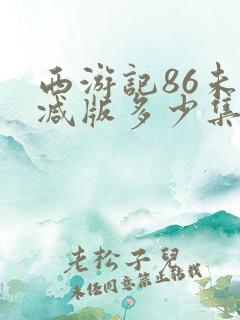 西游記86未
减版多少集
老松子兒
未经同意禁止转载